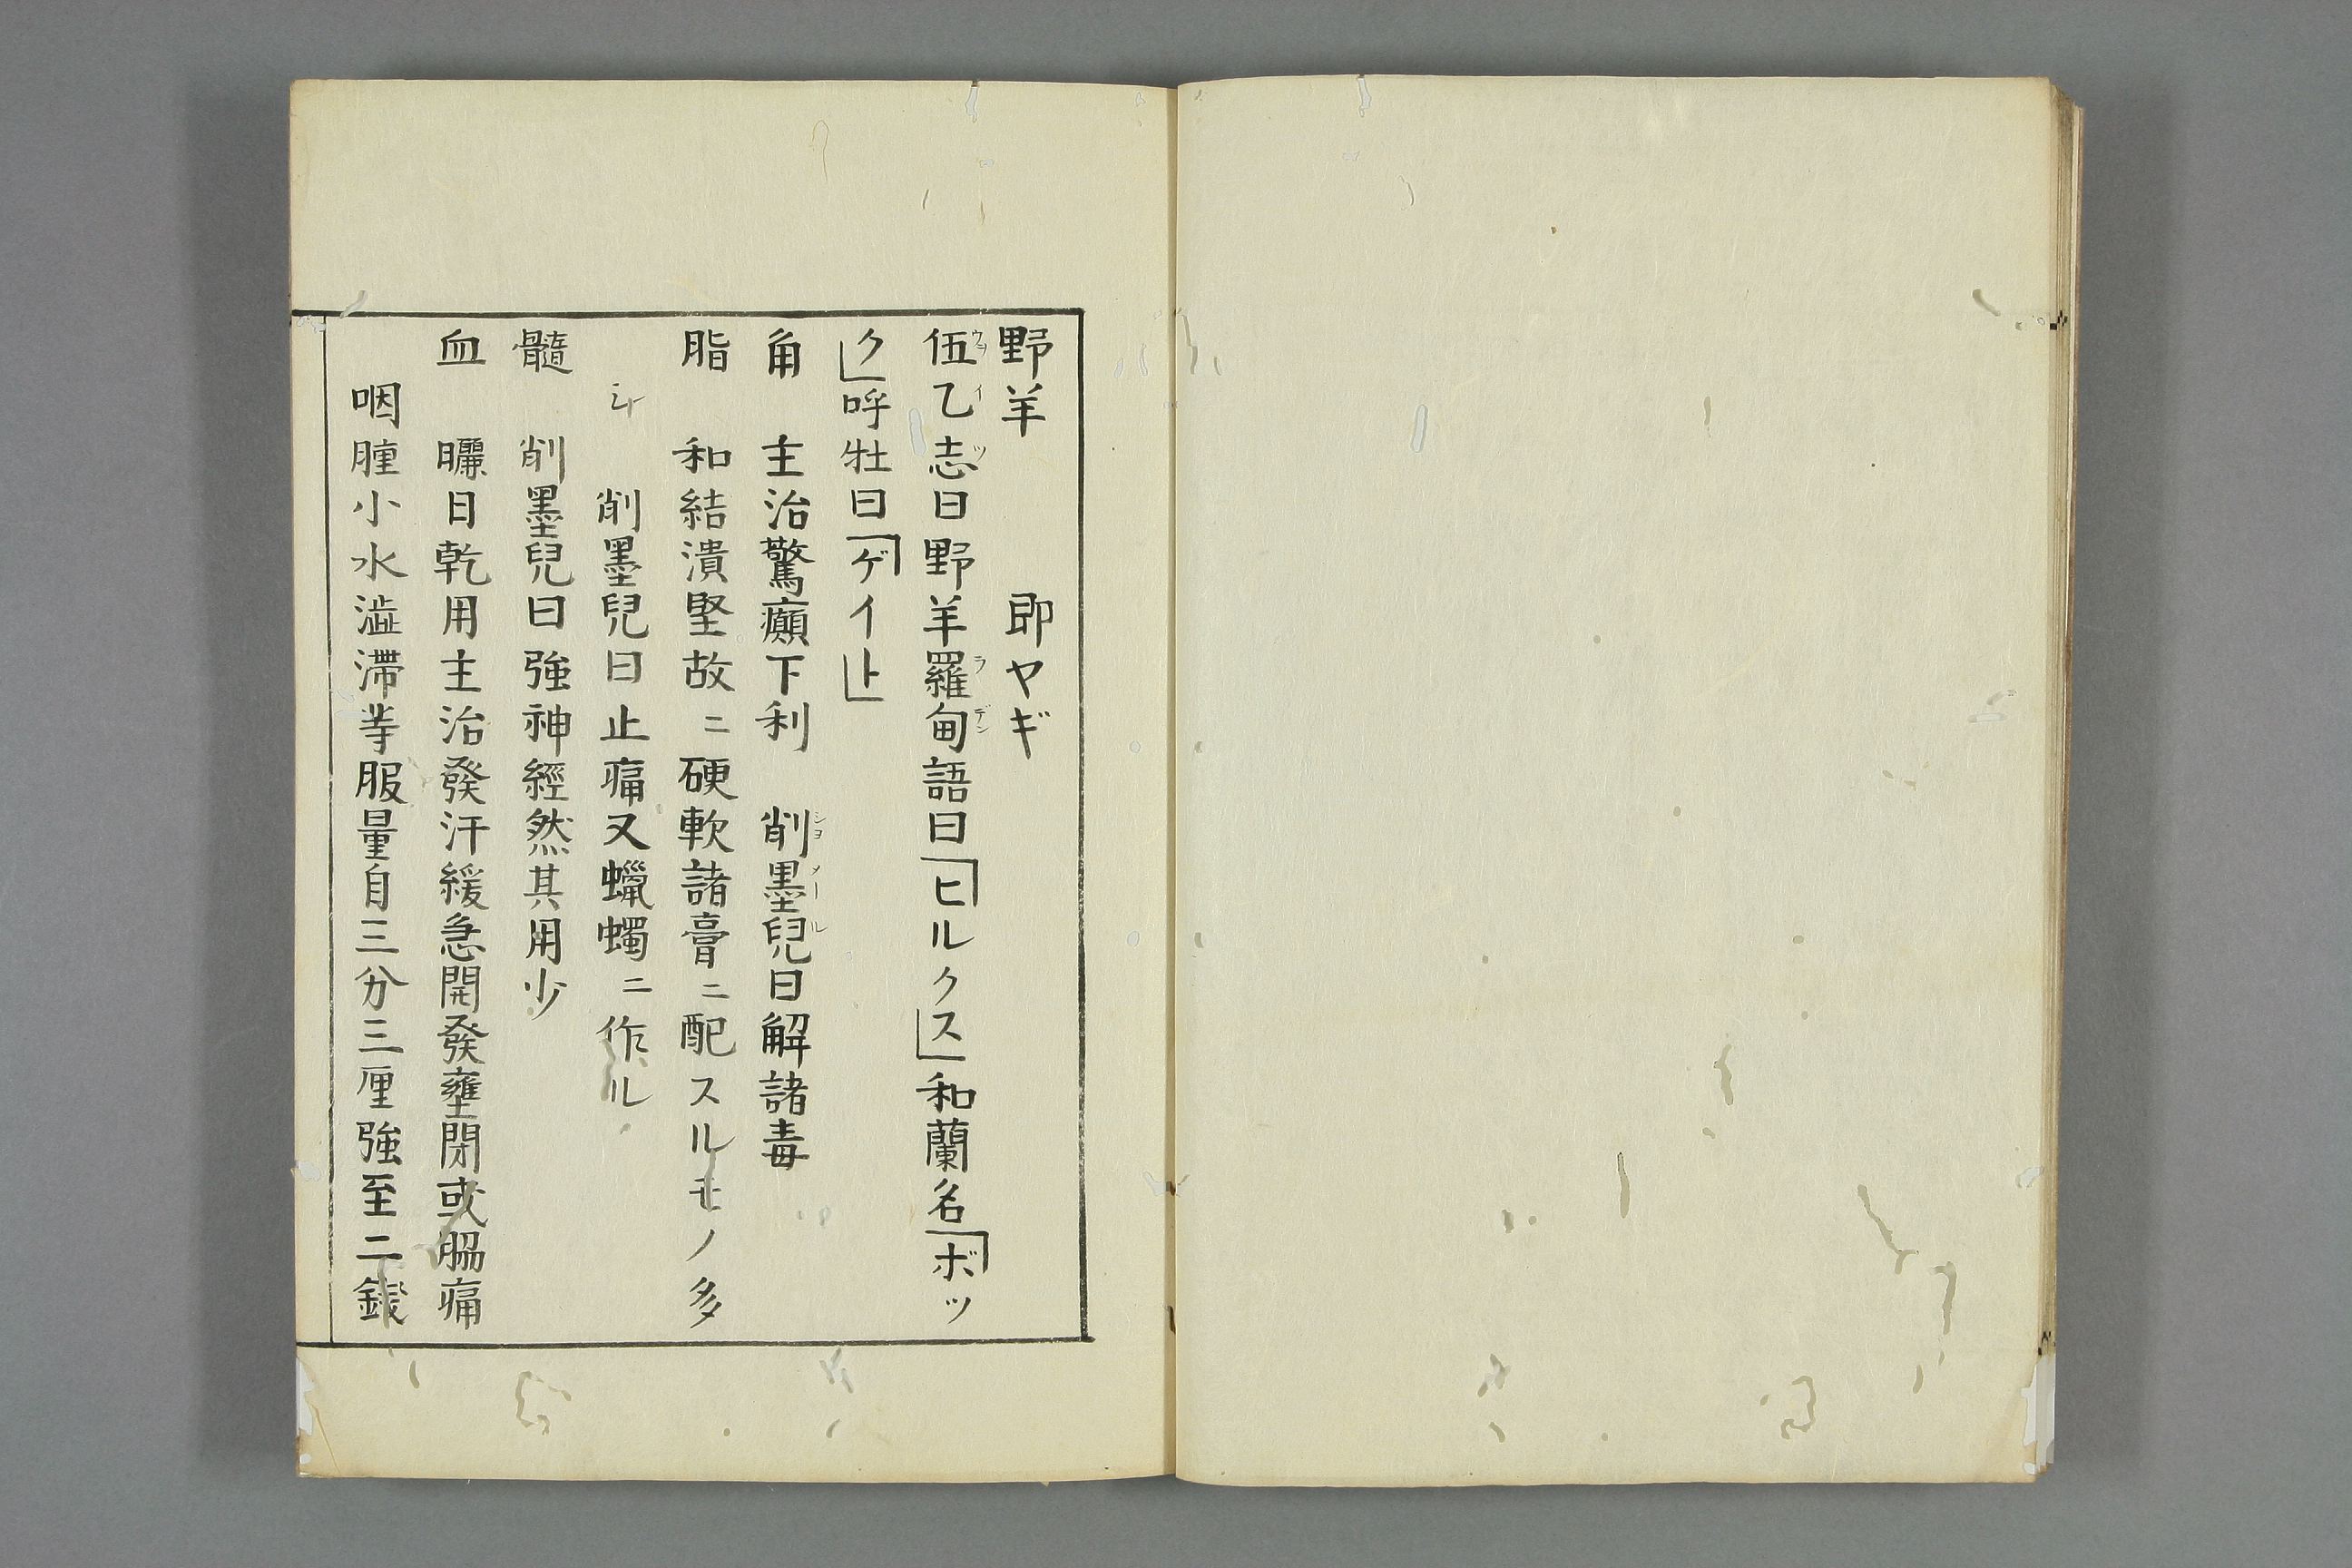 野羊　　　即ヤギ
伍乙志曰野羊羅甸語曰「ヒルクス」和蘭名「ボッ
ク」呼牡曰「ゲイト」
角　主治驚癲下利　削墨兒曰解諸毒
脂　和結潰堅故ニ硬軟諸膏ニ配スルモノ多
シ　削墨兒曰止痛又蠟蠋ニ作ル
髓　削墨兒曰強神經然其用少
血　曬日乾用主治發汗緩急開發壅閉或脇痛
咽腫小水澁滞等服量自三分三厘強至二錢